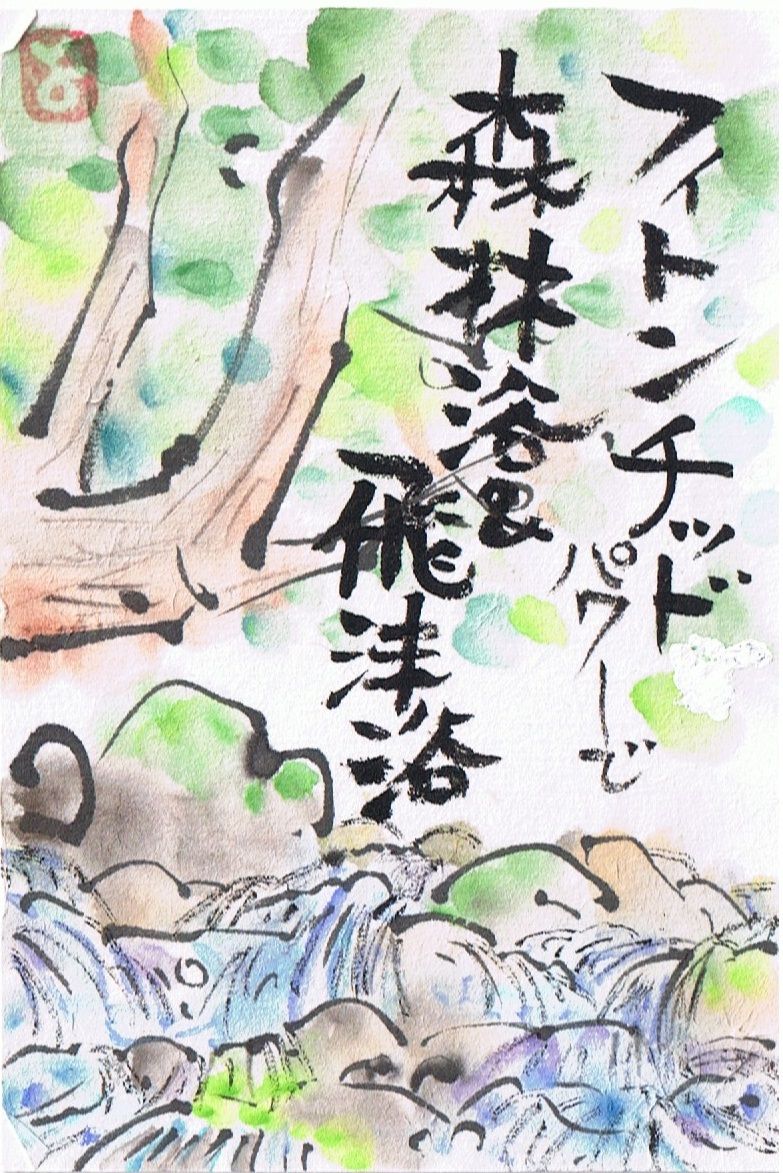 フィトンチッド
パワーで
森林浴
飛沫浴